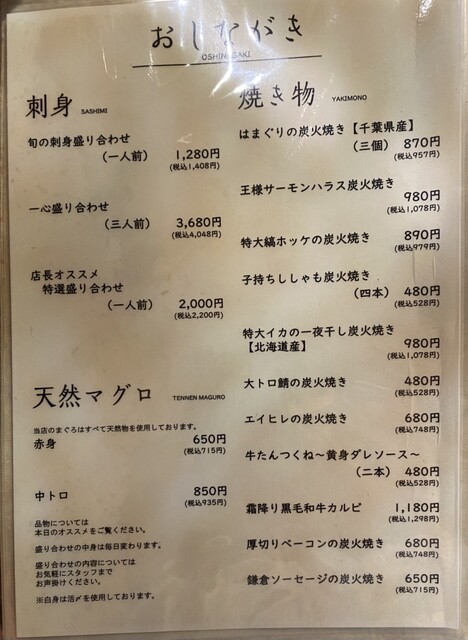 おしながき
OSHINAGAKI
刺身 SASHIMI
旬の刺身盛り合わせ
（一人前） 1,280円
(税込1,408円)
一心盛り合わせ
（三人前） 3,680円
(税込4,048円)
店長オススメ
特選盛り合わせ
（一人前） 2,000円
(税込2,200円)
天然マグロ TENNEN MAGURO
当店のまぐろはすべて天然物を使用しております。
赤身 650円
(税込715円)
中トロ 850円
(税込935円)
品物については
本日のオススメをご覧ください。
盛り合わせの中身は毎日変わります。
盛り合わせの内容については
お気軽にスタッフまで
お声掛けください。
※白身は活〆を使用しております。
焼き物 YAKIMONO
はまぐりの炭火焼き【千葉県産】
（三個） 870円
(税込957円)
王様サーモンハラス炭火焼き
980円
(税込1,078円)
特大縞ホッケの炭火焼き 890円
(税込979円)
子持ちししゃも炭火焼き
（四本） 480円
(税込528円)
特大イカの一夜干し炭火焼き
【北海道産】 980円
(税込1,078円)
大トロ鯖の炭火焼き 480円
(税込528円)
エイヒレの炭火焼き 680円
(税込748円)
牛たんつくね〜黄身ダレソース〜
（二本） 480円
(税込528円)
霜降り黒毛和牛カルビ 1,180円
(税込1,298円)
厚切りベーコンの炭火焼き 680円
(税込748円)
鎌倉ソーセージの炭火焼き 650円
(税込715円)